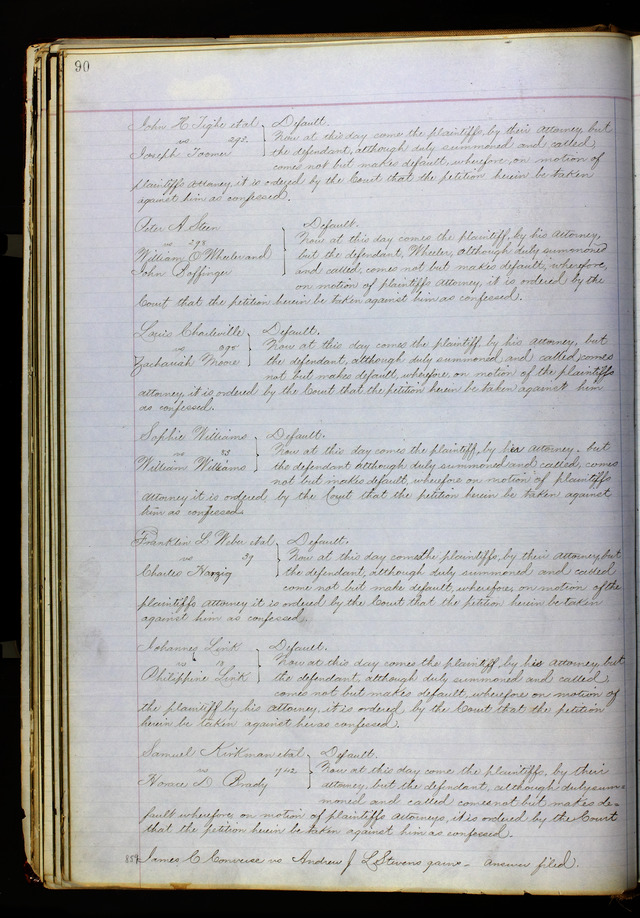 90
John H Tighe et al } Default.
vs 293. Now at this day come the plaintiffs, by their attorney, but
Joseph Toomer the defendant, although duly summoned and called
comes not but makes default, wherefore, on motion of
plaintiffs attorney, it is ordered by the Court that the petition herein be taken
against him as confessed.
Peter A Steen } Default.
vs 298 Now at this day comes the plaintiff, by his attorney,
William E Wheeler and but the defendant, Wheeler, although duly summoned
John Soffinger and called, comes not but makes default, wherefore,
on motion of plaintiffs attorney, it is ordered by the
Court that the petition herein be taken against him as confessed.
Louis Charleville } Default.
vs Now at this day comes the plaintiff, by his attorney, but
Zachariah Moore the defendant, although duly summoned and called, comes
not but makes default, wherefore, on motion of the plaintiffs
attorney, it is ordered by the Court that the petition herein be taken against him
as confessed.
Sophie Williams } Default.
vs 83 Now at this day comes the plaintiff, by her attorney, but
William Williams the defendant although duly summoned and called, comes
not but makes default, wherefore on motion of plaintiffs
attorney it is ordered by the Court that the petition herein be taken against
him as confessed
Franklin L Weber et al } Default.
vs 39 Now at this day comes the plaintiffs, by their attorney, but
Charles Harzig the defendant, although duly summoned and called
come not but make default, wherefore, on motion of the
plaintiffs attorney it is ordered by the Court that the petition herein be taken
against him as confessed.
Johannes Link } Default.
vs 13 Now at this day comes the plaintiff, by his attorney, but
Philippine Link the defendant, although duly summoned and called,
comes not but makes default, wherefore on motion of
the plaintiff, by his attorney, it is ordered by the Court that the petition
herein be taken against her as confessed.
Samuel Kirkman et al } Default.
vs 742 Now at this day come the plaintiffs, by their
Horace D Brady attorney, but the defendant, although duly sum-
moned and called comes not but makes de-
fault wherefore, on motion of plaintiffs attorneys, it is ordered by the Court
that the petition herein be taken against him as confessed.
857 James C Converse vs Andrew J L Stevens garn - answer filed.